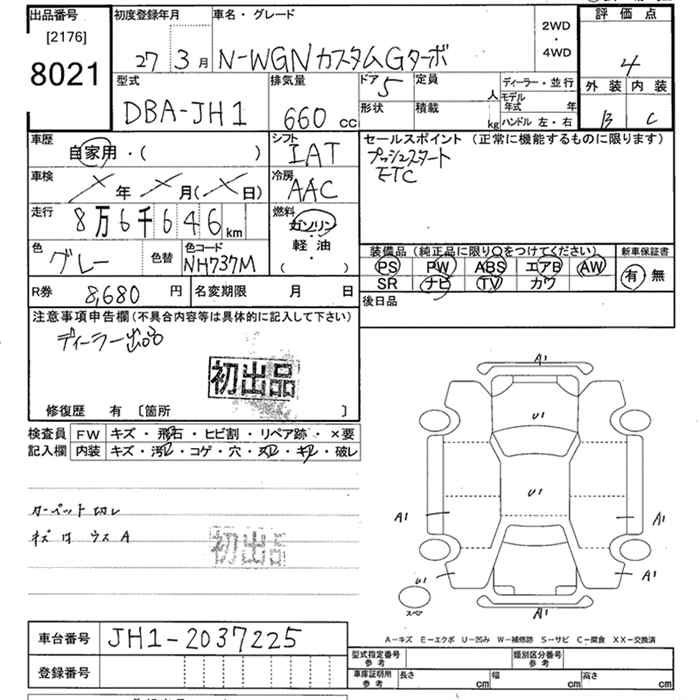 出品番号
[2176]
8021
初度登録年月
27 3月
車名・グレード
N-WGNカスタムGターボ
2WD
・
4WD
評価点
4
外装 内装
B C
型式
DBA-JH1
排気量
660 cc
ドア 5
形状
定員 人
積載 kg
ディーラー・並行
モデル年式 年
ハンドル 左・右
車歴
自家用・( )
シフト
IAT
車検
年 月( 日)
冷房
AAC
走行
8万6千646km
燃料
ガソリン
・
軽油
( )
色
グレー
色替
色コード
NH737M
R券 8,680円
名変期限 月 日
セールスポイント (正常に機能するものに限ります)
プッシュスタート
ETC
装備品(純正品に限り○をつけてください)
PS PW ABS エアB AW
SR ナビ TV カワ
新車保証書
有 無
後日品
注意事項申告欄(不具合内容等は具体的に記入して下さい)
ディーラー出品
初出品
修復歴 有 [箇所 ]
検査員 FW キズ・飛石・ヒビ割・リペア跡・×要
記入欄 内装 キズ・汚レ・コゲ・穴・スレ・キレ・破レ
カーペット切レ
キズは ウス A
初出品
A1
U1
U1
A1
A1
U1
A1
スペア
A1
A-キズ E-エクボ U-凹み W-補修跡 S-サビ C-腐食 XX-交換済
車台番号 JH1-2037225
登録番号
型式指定番号
参考
類別区分番号
参考
車庫証明用
参考
長さ cm 幅 cm 高さ cm